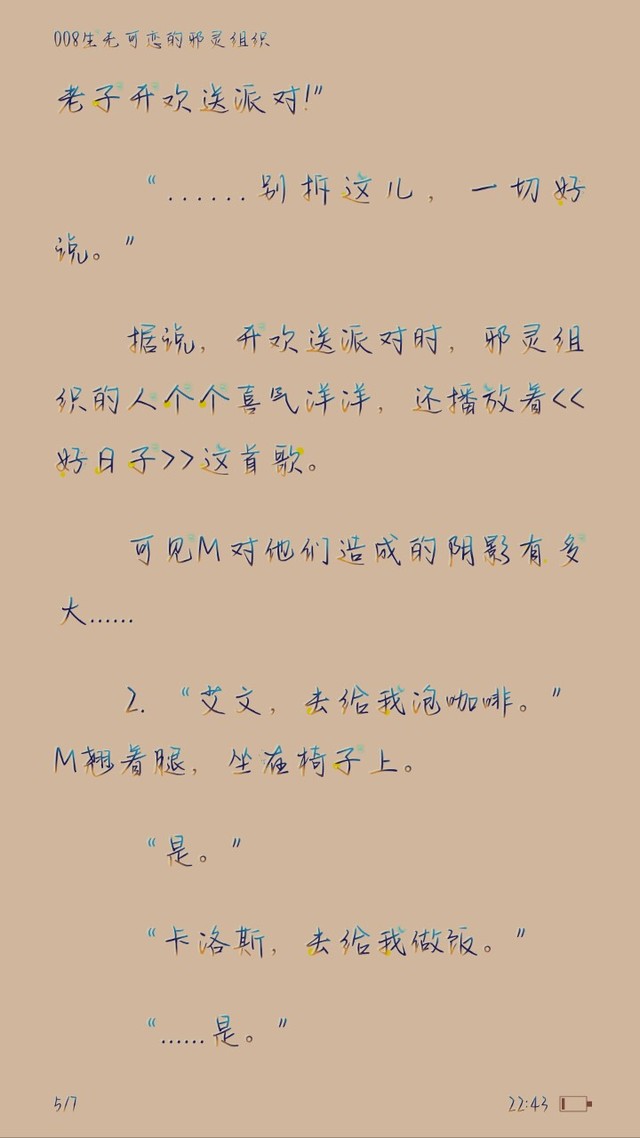 008生无可恋的邪灵组织
老子开欢送派对!"
"......别拆这儿，一切好
说。"
据说，开欢送派对时，邪灵组
织的人个个喜气洋洋，还播放着<<
好日子>>这首歌。
可见M对他们造成的阴影有多
大......
2. "艾文，去给我泡咖啡。"
M翘着腿，坐在椅子上。
"是。"
"卡洛斯，去给我做饭。"
"......是。"
5/7
22:43